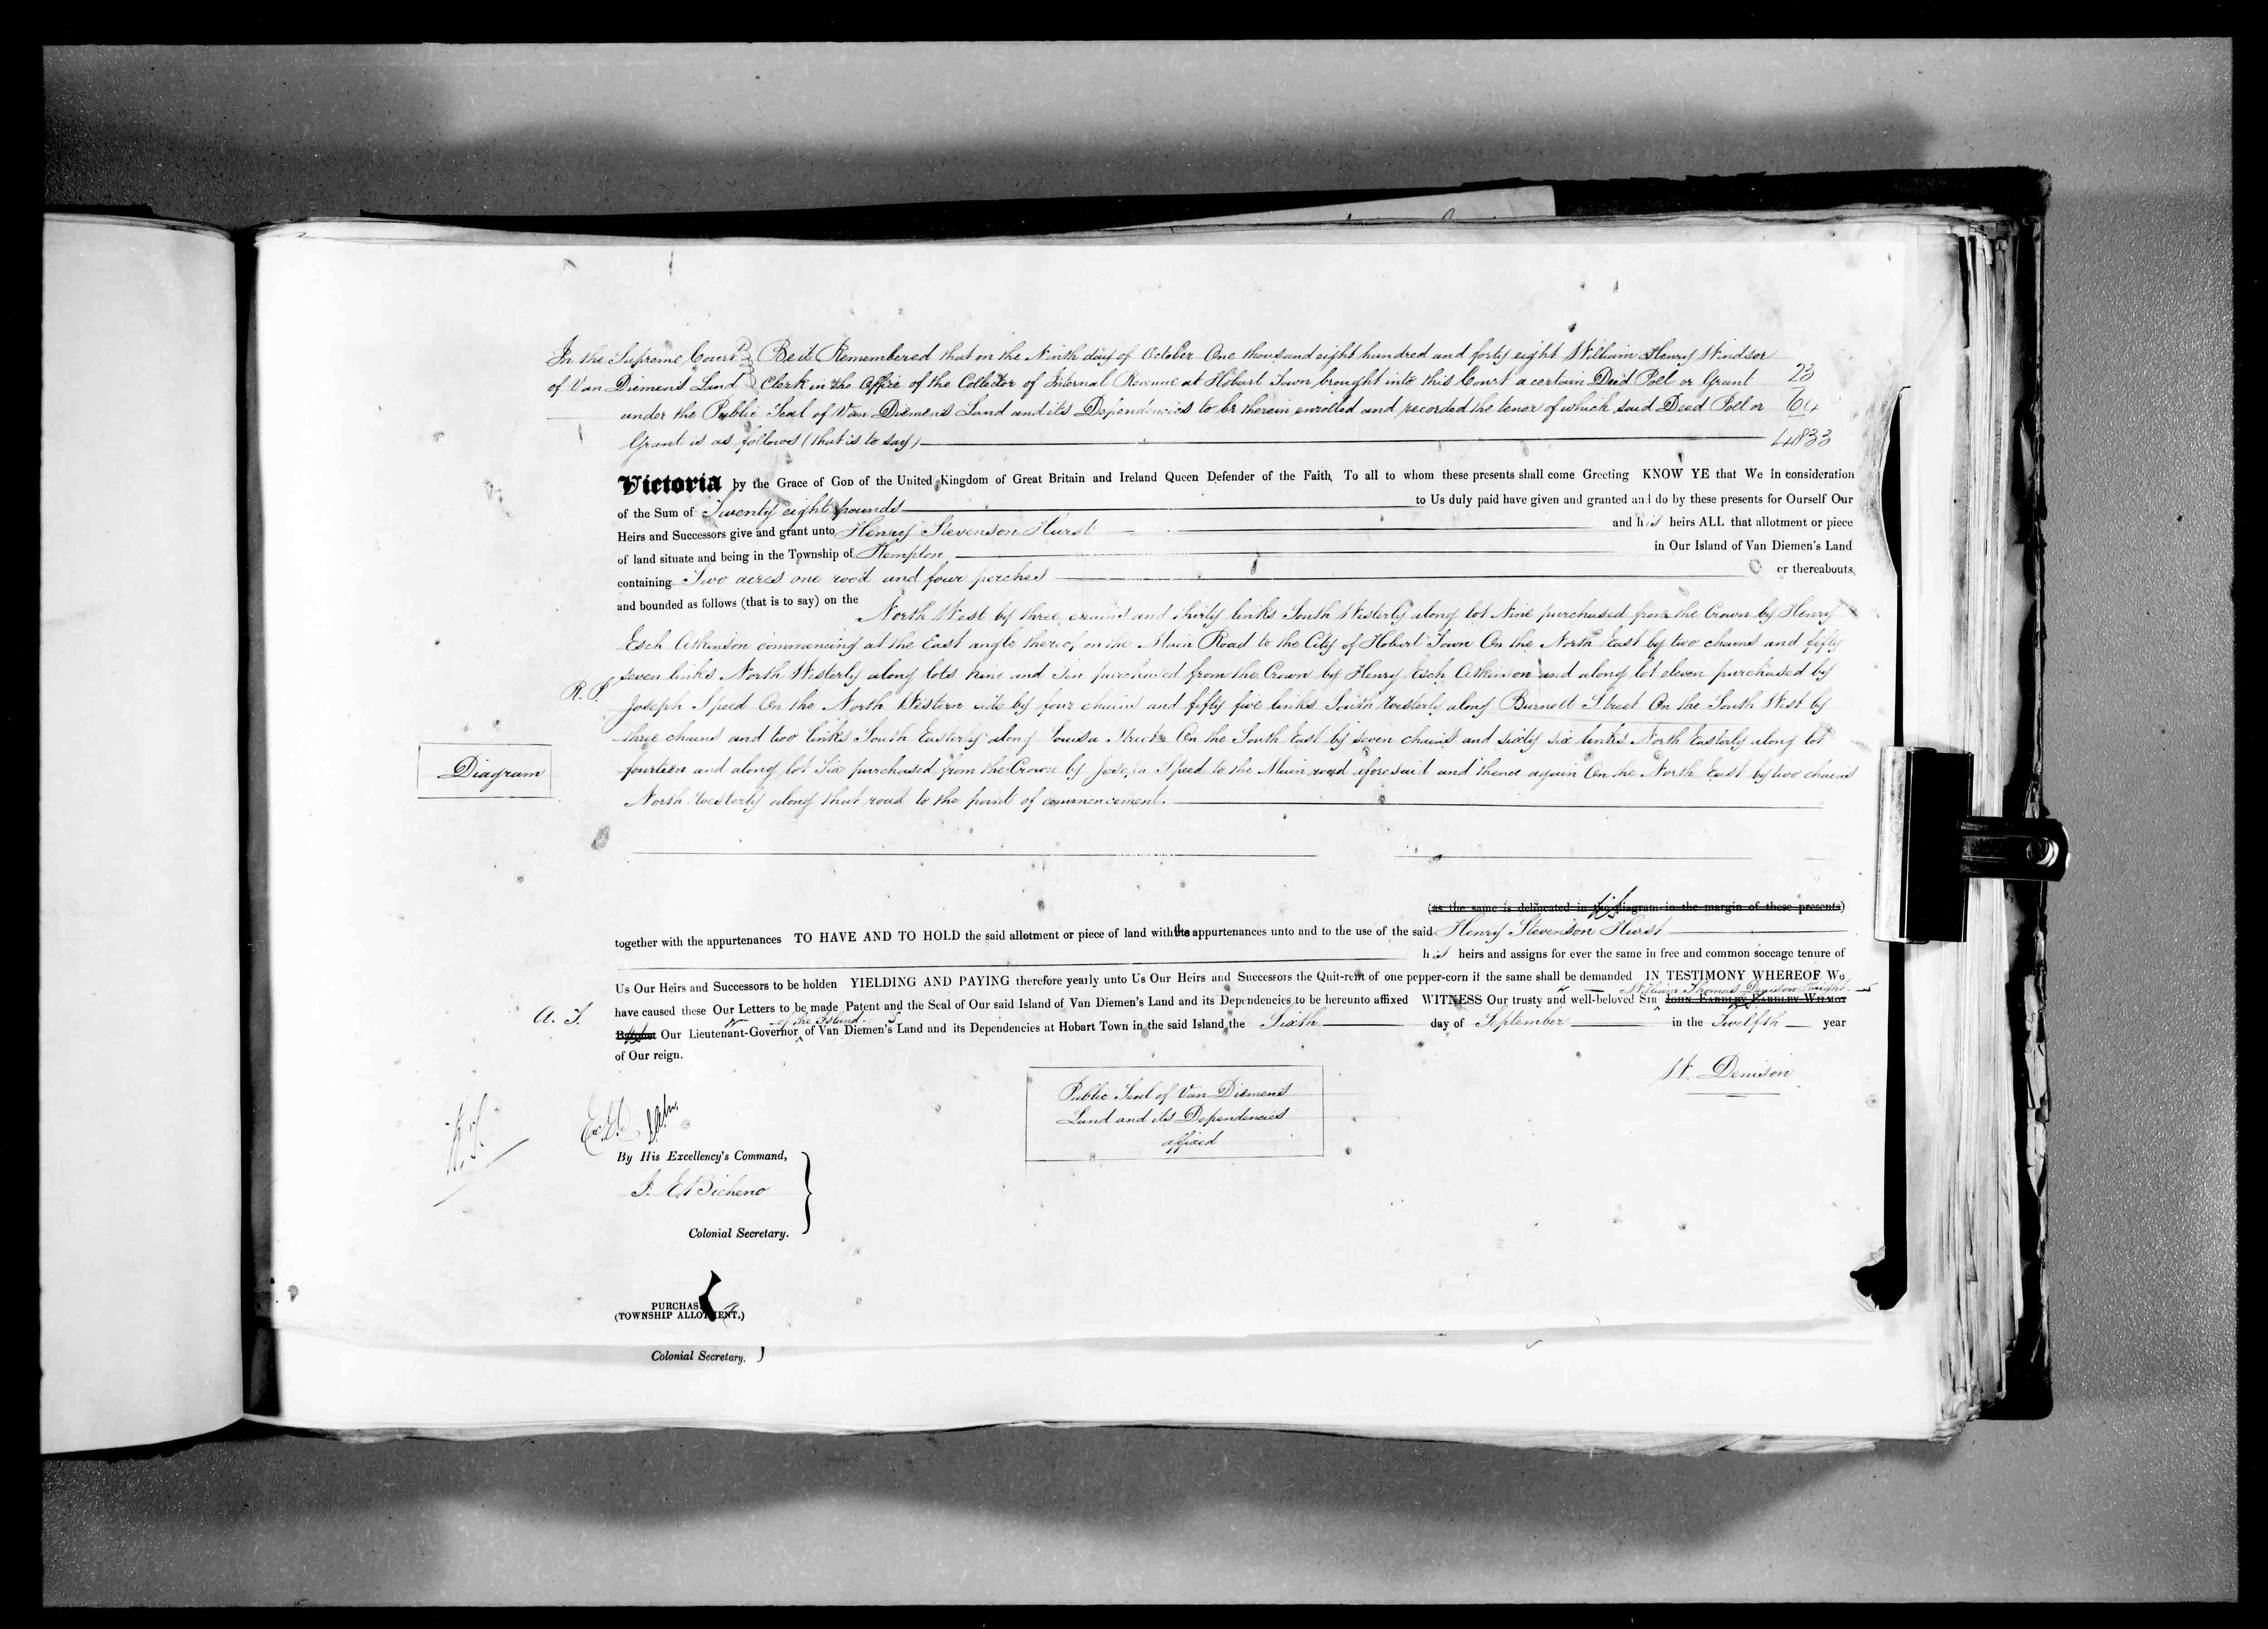 In the Supreme Court } Be it Remembered that on the Ninth day of October One thousand eight hundred and forty eight William Henry Windsor
of Van Diemen's Land } Clerk in the Office of the Collector of Internal Revenue at Hobart Town brought into this Court a certain Deed Poll or Grant 23
under the Public Seal of Van Diemens Land and its Dependencies to be therein enrolled and recorded the tenor of which said Deed Poll or 64
Grant is as follows (that is to say) 4833
Victoria by the Grace of GOD of the United Kingdom of Great Britain and Ireland Queen Defender of the Faith, To all to whom these presents shall come Greeting KNOW YE that We in consideration
of the Sum of Twenty eight pounds to Us duly paid have given and granted and do by these presents for Ourself Our
Heirs and Successors give and grant unto Henry Stevenson Hurst and his heirs ALL that allotment or piece
of land situate and being in the Township of Kempton in Our Island of Van Diemen's Land
containing Two acres one rood and four perches or thereabouts
and bounded as follows (that is to say) on the North West by three chains and thirty links South Westerly along lot Nine purchased from the Crown by Henry
Esch Atkinson commencing at the East angle thereof on the Main Road to the City of Hobart Town On the North East by two chains and fifty
seven links North Westerly along lots Nine and Ten purchased from the Crown by Henry Esch Atkinson and along lot eleven purchased by
R. P.
Joseph Speed On the North Western side by four chains and fifty five links South Westerly along Burnett Street On the South West by
three chains and two links South Easterly along Louisa Street On the South East by seven chains and sixty six links North Easterly along lot
Diagram
fourteen and along lot Six purchased from the Crown by Joseph Speed to the Main road aforesaid and thence again On the North East by two chains
North Westerly along that road to the point of commencement.
(as the same is delineated in the diagram in the margin of these presents)
together with the appurtenances TO HAVE AND TO HOLD the said allotment or piece of land with the appurtenances unto and to the use of the said Henry Stevenson Hurst
his heirs and assigns for ever the same in free and common soccage tenure of
Us Our Heirs and Successors to be holden YIELDING AND PAYING therefore yearly unto Us Our Heirs and Successors the Quit-rent of one pepper-corn if the same shall be demanded IN TESTIMONY WHEREOF We
William Thomas Denison Knight
A. T. have caused these Our Letters to be made Patent and the Seal of Our said Island of Van Diemen's Land and its Dependencies to be hereunto affixed WITNESS Our trusty and well-beloved SIR JOHN EARDLEY EARDLEY WILMOT
of the Island
Baronet Our Lieutenant-Governor of Van Diemen's Land and its Dependencies at Hobart Town in the said Island the Sixth day of September in the Twelfth year
of Our reign.
W. Denison
Public Seal of Van Diemens
Land and its Dependencies
affixed
By His Excellency's Command,
J. E. Bicheno
Colonial Secretary.
PURCHASE
(TOWNSHIP ALLOTMENT.)
Colonial Secretary.